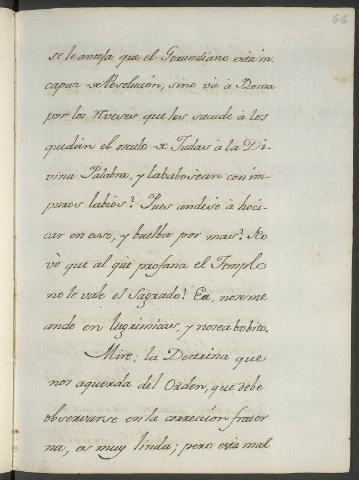 66
se le antoja que el Gerundiano está in-
capaz de Absolucion, sino và à Roma
por los Nueses que les sacude à los
que dàn el osculo de Judas à la Di-
vina Palabra, y la babosean con im-
puros labios? Pues andese à hoci-
car en esso, y buelba por mas? No
vè que al què profana el Templo
no le vale el Sagrado! Ea, no se me
ande en lagrimicas, y no sea bobito.
Mire; la Doctrina que
nos aquerda del Orden, que debe
observarse en la correccion frater
na, es muy linda; pero està mal